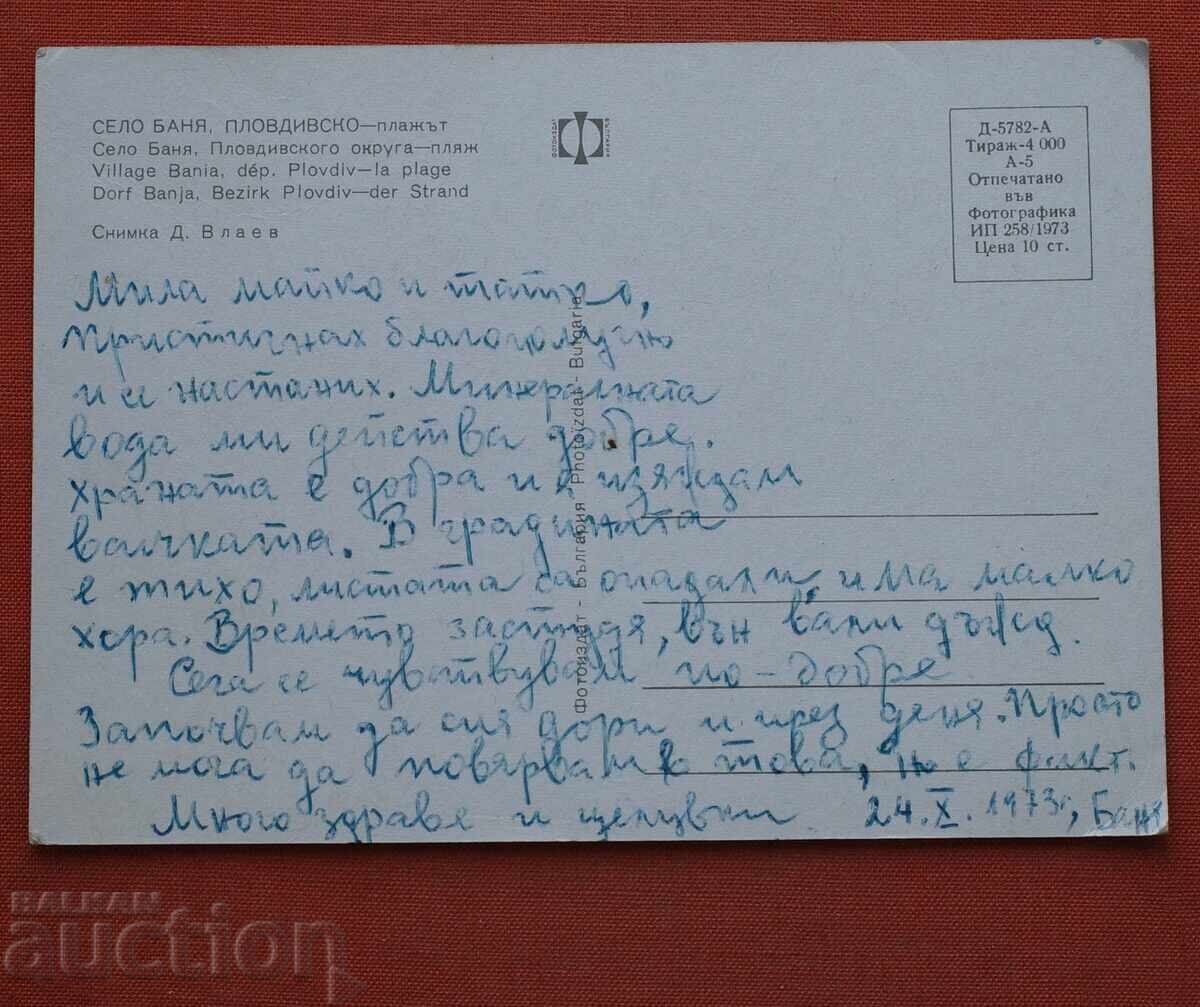 СЕЛО БАНЯ, ПЛОВДИВСКО—плажът
Село Баня, Пловдивского округа—пляж
Village Bania, dép. Plovdiv—la plage
Dorf Banja, Bezirk Plovdiv—der Strand
Снимка Д. Влаев
Д-5782-А
Тираж-4 000
А-5
Отпечатано
във
Фотографика
ИП 258/1973
Цена 10 ст.
Фотоиздат - България Photoizdat - Bulgaria
Мила майко и татко,
пристигнах благополучно
и се настаних. Минералната
вода ми действа добре.
храната е добра и я изяждам
всичката. В градината
е тихо, листата са опадали, има малко
хора. Времето застудя, вън вали дъжд.
Сега се чувствувам по-добре.
Започвам да спя дори и през деня. Просто
не мога да повярвам в това, но е факт.
Много здраве и целувки 24.X.1973г, Баня
BALKAN
auction